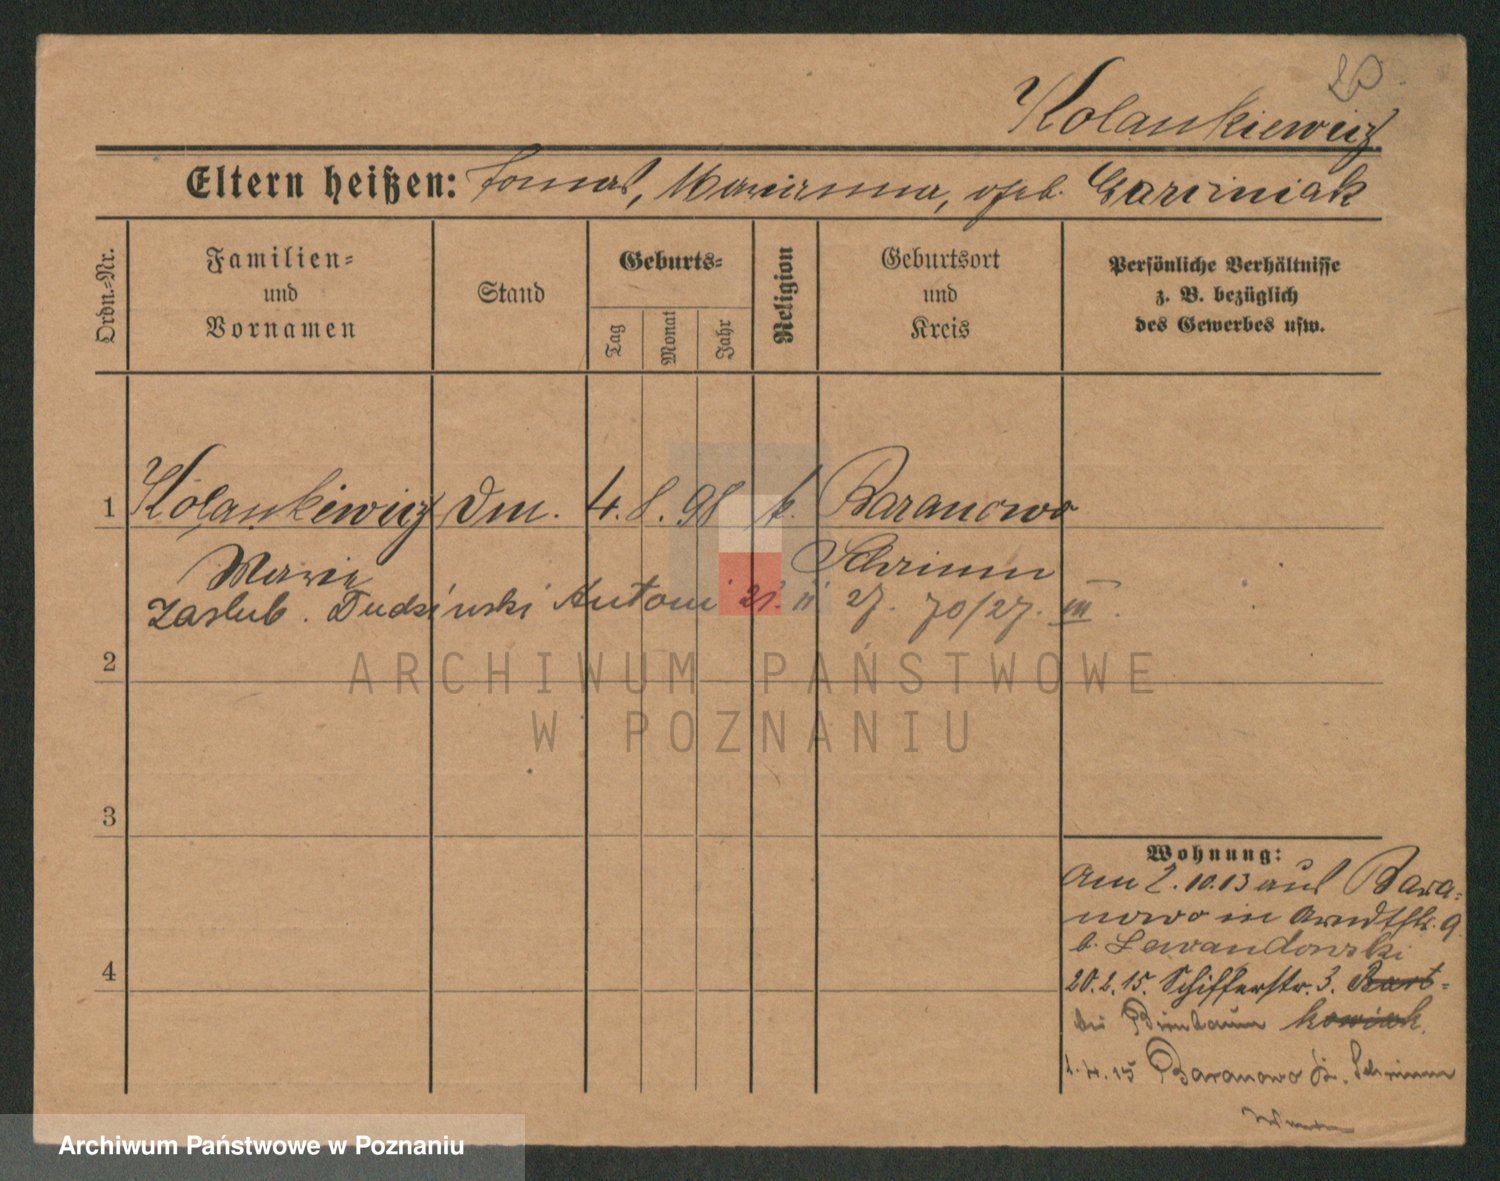 20
Kolankiewicz
Eltern heißen: Tomas, Marianna, geb. Garciniak
Ordn.-Nr.
Familien-
und
Vornamen
Stand
Geburts-
Tag
Monat
Jahr
Religion
Geburtsort
und
Kreis
Persönliche Verhältnisse
z. B. bezüglich
des Gewerbes usw.
1 Kolankiewicz Dm. 4. 8. 98 k. Baranowo
Maria Schrimm
Zaślub. Dudziński Antoni 21. II. 27. 70/27. III.
2
ARCHIWUM PAŃSTWOWE
W POZNANIU
3
Wohnung:
Am 2.10.13 aus Bara-
nowo in Arndtstr. 9
b. Lewandowski
4
20.2.15. Schifferstr. 3. Bart-
bei Birnbaum kowiak.
1.4.15 Baranowo Kr. Schrimm
Archiwum Państwowe w Poznaniu